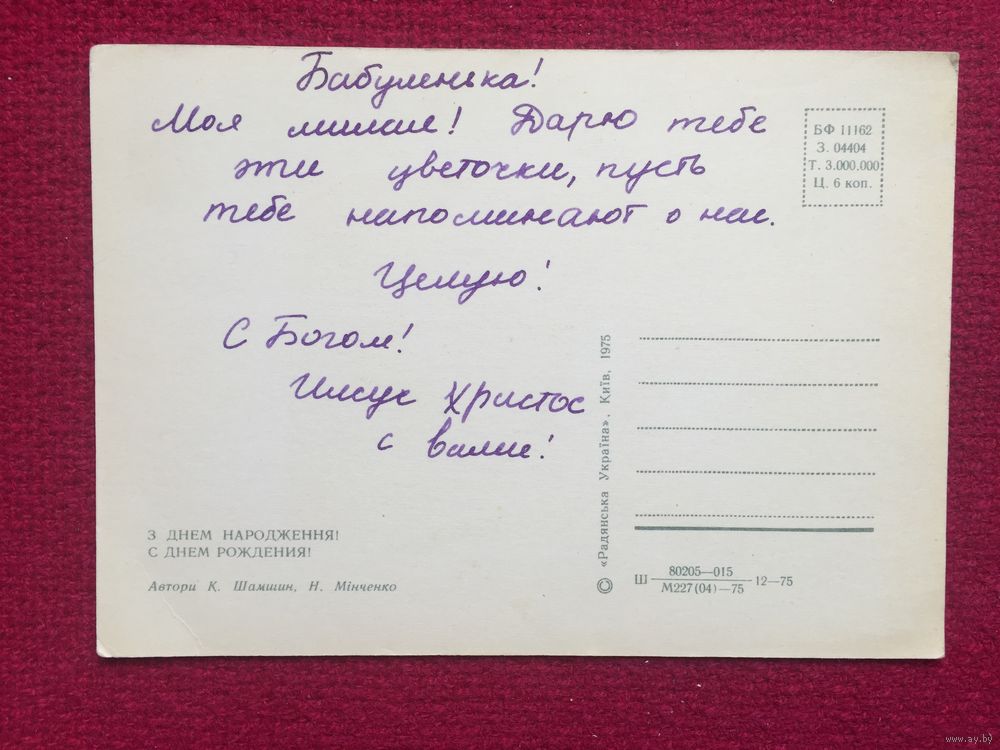 Бабуленька!
Моя милая! Дарю тебе
эти цветочки, пусть
тебе напоминают о нас.
Целую!
С Богом!
Иисус Христос
с вами!
З ДНЕМ НАРОДЖЕННЯ!
С ДНЕМ РОЖДЕНИЯ!
Автори К. Шамшин, Н. Мінченко
БФ 11162
З. 04404
Т. 3.000.000
Ц. 6 коп.
© «Радянська Україна». Київ, 1975
Ш 80205—015
М227(04)—75 —12—75
www.ay.by